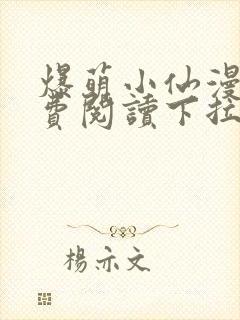 爆萌小仙漫
費閱讀下拉
楊亦文